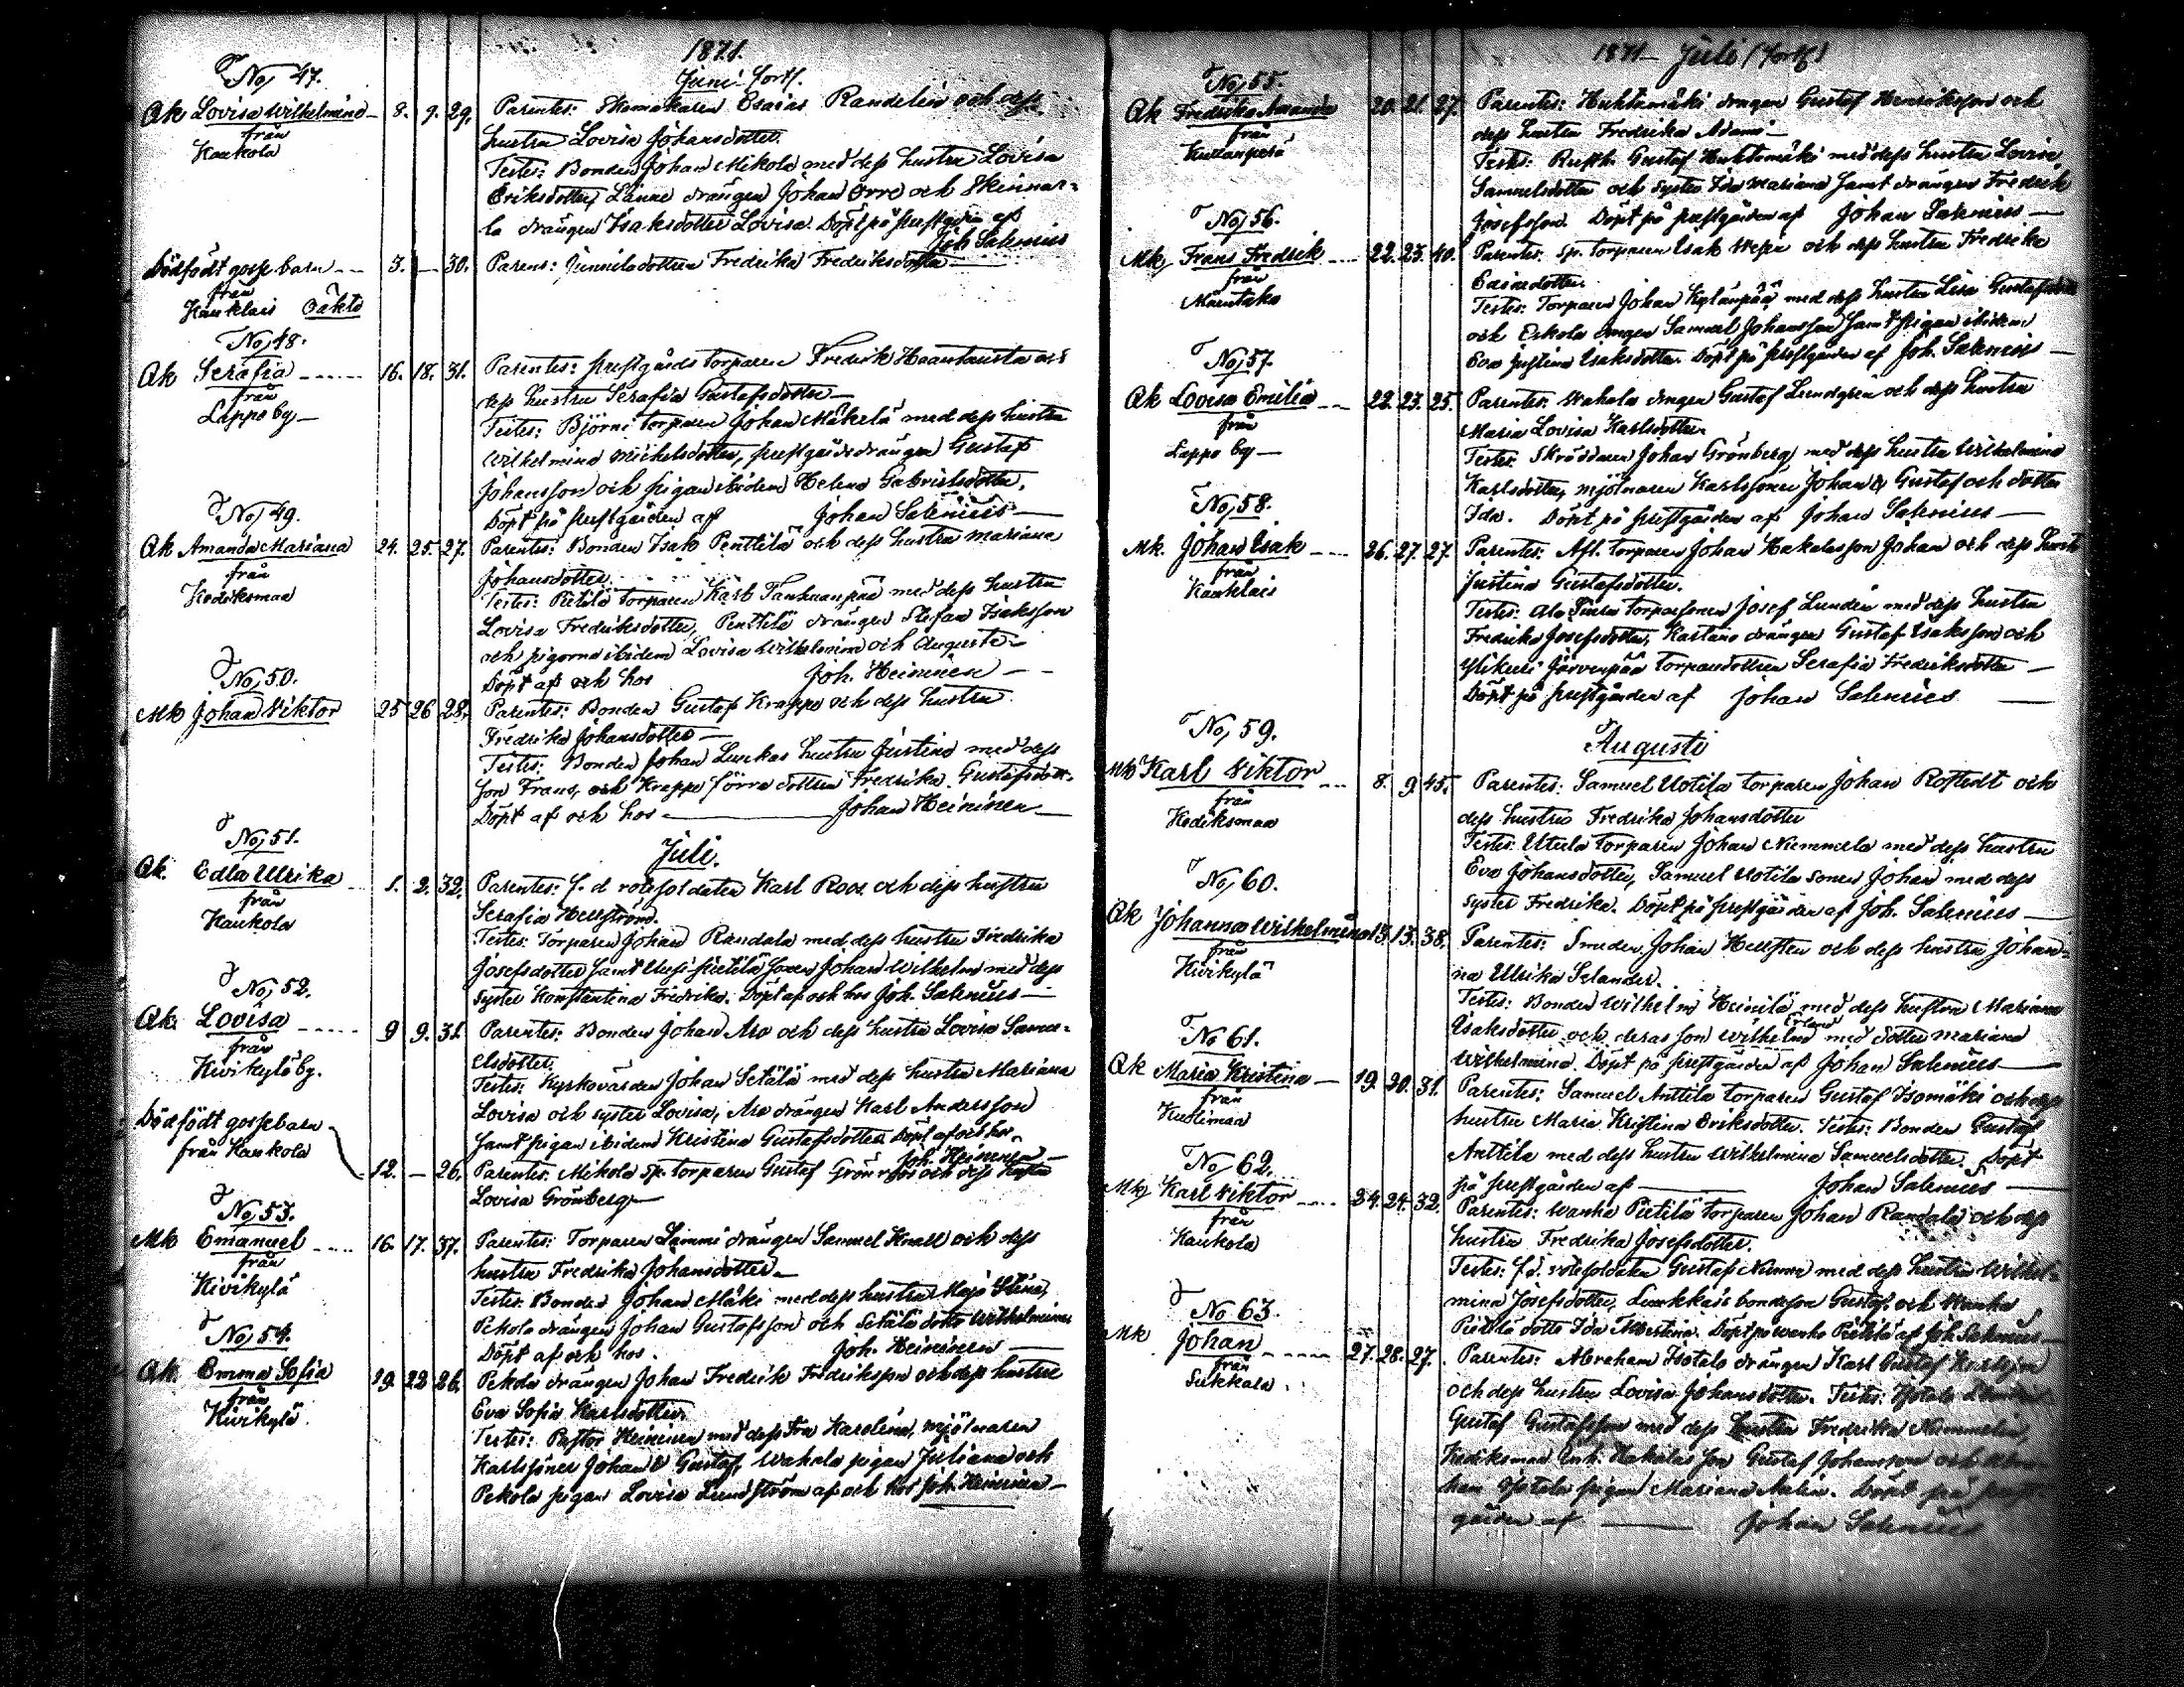 1871.
Juni forts.
No 47.
Qk Lovisa Wilhelmina 8. 9. 29. Parentes: Skomakaren Esaias Randelin och dess
från
Kaukola
hustru Lovisa Johansdotter.
Testes: Bonden Johan Mikola med dess hustru Lovisa
Eriksdotter, Länne drängen Johan Orre och Skinnar-
la drängen Isaksdotter Lovisa. Döpt på prestgården af
Joh Salenius
Dödfödt gosse barn 3. — 30. Parens: Junniladottren Fredrika Fredriksdotter
från
Kauklais Oäkta
No 48.
Qk Serafia 16. 18. 31. Parentes: prestgårds torparen Fredrik Haantausta och
från
Lappo by
dess hustru Serafia Gustafsdotter
Testes: Björni torparen Johan Mäkelä med dess hustru
Wilhelmina Michelsdotter, prestgårdsdrängen Gustaf
Johansson och pigan ibidem Helena Gabrielsdotter.
Döpt på prestgården af Johan Salenius
No 49.
Qk Amanda Mariana 24. 25. 27. Parentes: Bonden Isak Penttilä och dess hustru Mariana
från
Kodiksmaa
Johansdotter
Testes: Pietilä torparen Karl Tanhuanpää med dess hustru
Lovisa Fredriksdotter, Penttilä drängen Stefan Isaksson
och pigorna ibidem Lovisa Wilhelmina och Augusta
Döpt af och hos Joh. Heininen
No 50.
Mk Johan Viktor 25 26 28. Parentes: Bonden Gustaf Krappe och dess hustru
Fredrika Johansdotter
Testes: Bonden Johan Luukas hustru Justina med dess
son Frans, och Krappe förra dottren Fredrika Gustafsdott.
Döpt af och hos Johan Heininen
Juli.
No 51.
Qk. Edla Ulrika 1. 2. 32. Parentes: f. d rotesoldaten Karl Roos och dess hustru
från
Kaukola
Serafia Hellström.
Testes: Torparen Johan Randala med dess hustru Fredrika
Josefsdotter samt Uusi Pietilä sonen Johan Wilhelm med dess
syster Konstantina Fredrika. Döpt af och hos Joh. Salenius
No 52.
Qk. Lovisa 9 9. 31. Parentes: Bonden Johan Aro och dess hustru Lovisa Samu-
från
Kivikylä by.
elsdotter.
Testes: Kyrkovärden Johan Setälä med dess hustru Mariana
Lovisa och syster Lovisa, Aro drängen Karl Andersson
samt pigan ibidem Kristina Gustafsdotter Döpt af och hos
Joh. Heininen
Dödfödt gossebarn
från Kaukola
12. — 26. Parentes: Mikola sp. torparen Gustaf Grönroos och dess hustru
Lovisa Grönberg
No 53.
Mk Emanuel 16. 17. 37. Parentes: Torparen Lammi drängen Samuel Knall och dess
från
Kivikylä
hustru Fredrika Johansdotter
Testes: Bonden Johan Mäki med dess hustru Maja Stina,
Pekola drängen Johan Gustafsson och Setälä dotter Wilhelmina
Döpt af och hos. Joh. Heininen
No 54.
Qk. Emma Sofia 19 22 26. Pekola drängen Johan Fredrik Fredriksson och dess hustru
från
Kivikylä
Eva Sofia Karlsdotter.
Testes: Pastor Heininen med dess fru Karolina, mjölnaren
Karlssöner Johan & Gustaf, Wahala pigan Juliana och
Pekola pigan Lovisa Lundström af och hos Joh. Heininen
1871 — Juli (forts)
No 55.
Qk Fredrika Amanda 20. 21. 27. Parentes: Huhtamäki drngen Gustaf Henriksson och
från
dess hustru Fredrika Adami
Testes: Rusth. Gustaf Huhtamäki med dess hustru Lovisa
Samuelsdotter och syster Ida Mariana samt drängen Fredrik
Josefsson. Döpt på prestgården af Johan Salenius
No 56.
Mk Frans Fredrik 22. 23. 40. Parentes: Sp. torparen Isak Wepa och dess hustru Fredrika
från
Esaiædotter.
Testes: Torparen Johan Kylänpää med dess hustru Lisa Gustafsdotter
och Eskola drngen Samuel Johansson samt pigan ibidem
Eva Justina Isaksdotter. Döpt på prestgården af Joh. Salenius
No 57.
Qk Lovisa Emilia 22. 23. 25. Parentes: Wahala drngen Gustaf Lundgren och dess hustru
från
Lappo by
Maria Lovisa Karlsdotter.
Testes: Skräddaren Johan Grönberg med dess hustru Wilhelmina
Karlsdotter, mjölnaren Karlssöner Johan & Gustaf och dotter
Ida. Döpt på prestgården af Johan Salenius
No 58.
Mk. Johan Isak 26. 27. 27. Parentes: Afl. torparen Johan Hakalas son Johan och dess hustru
från
Kauklais
Justina Gustafsdotter.
Testes: torparsonen Josef Lunden med dess hustru
Fredrika Josefsdotter, Kastano drängen Gustaf Isaksson och
Järvenpää torparedottren Serafia Fredriksdotter
Döpt på prestgården af Johan Salenius
Augusti
No 59.
Mk Karl Viktor 8. 9. 45. Parentes: Samuel Uotila torparen Johan Rostedt och
från
Kodiksmaa
dess hustru Fredrika Johansdotter
Testes: Utula torparen Johan Nummela med dess hustru
Eva Johansdotter, Samuel Uotila sonen Johan med dess
syster Fredrika. Döpt på prestgården af Joh. Salenius
No 60.
Qk Johanna Wilhelmina 13. 13. 38. Parentes: Smeden Johan Hellsten och dess hustru Johan-
från
Kivikylä
na Ulrika Selander.
Testes: Bonden Wilhelm Heinilä med dess hustru Mariana
Isaksdotter och deras son Wilhelm Erland med dotter Mariana
Wilhelmina. Döpt på prestgården af Johan Salenius
No 61.
Qk Maria Kristina 19. 20. 31. Parentes: Samuel Anttila torparen Gustaf Isomäki och dess
från
hustru Maria Kristina Eriksdotter. Testes: Bonden Gustaf
Anttila med dess hustru Wilhelmina Samuelsdotter. Döpt
på prestgården af Johan Salenius
No 62.
Mk Karl Viktor 24. 24. 32. Parentes: Wanha Pietilä torparen Johan Randala och dess
från
Kaukola
hustru Fredrika Josefsdotter.
Testes: f.d. rotesoldaten Gustaf Nummi med dess hustru Wilhel-
mina Josefsdotter, bondeson Gustaf och Wanha
Pietilä dotter Ida Albertina. Döpt på Wanha Pietilä af Joh Salenius
No 63.
Mk Johan 27. 28. 27. Parentes: Abraham Isotalo drängen Karl Gustaf Karlsson
från
Sukkala
och dess hustru Lovisa Johansdotter. Testes: Isotalo
Gustaf Gustafsson med dess hustru Fredrika Nummelin,
Kodiksmaa Hakalas son Gustaf Johansson och
Isotalo pigan Mariana Malin. Döpt på prest-
gården af Johan Salenius